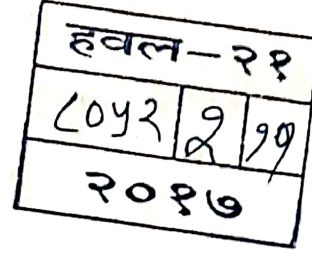 हवल-२१
८०५२ २ ११
२०१७